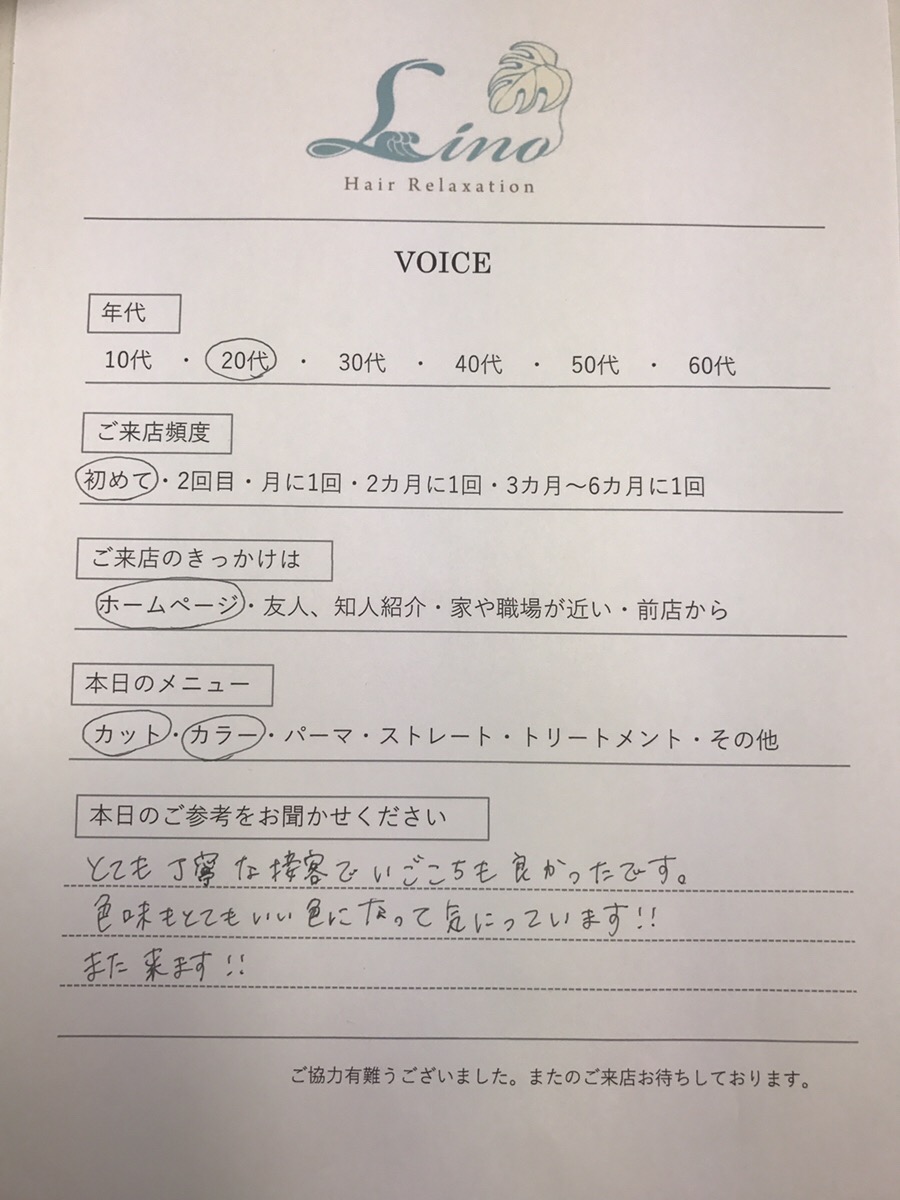 Lino
Hair Relaxation
VOICE
年代
10代 ・ 20代 ・ 30代 ・ 40代 ・ 50代 ・ 60代
ご来店頻度
初めて・2回目・月に1回・2カ月に1回・3カ月〜6カ月に1回
ご来店のきっかけは
ホームページ・友人、知人紹介・家や職場が近い・前店から
本日のメニュー
カット・カラー・パーマ・ストレート・トリートメント・その他
本日のご参考をお聞かせください
とても丁寧な接客でいごこちも良かったです。
色味もとてもいい色になって気にっています!!
また来ます!!
ご協力有難うございました。またのご来店お待ちしております。